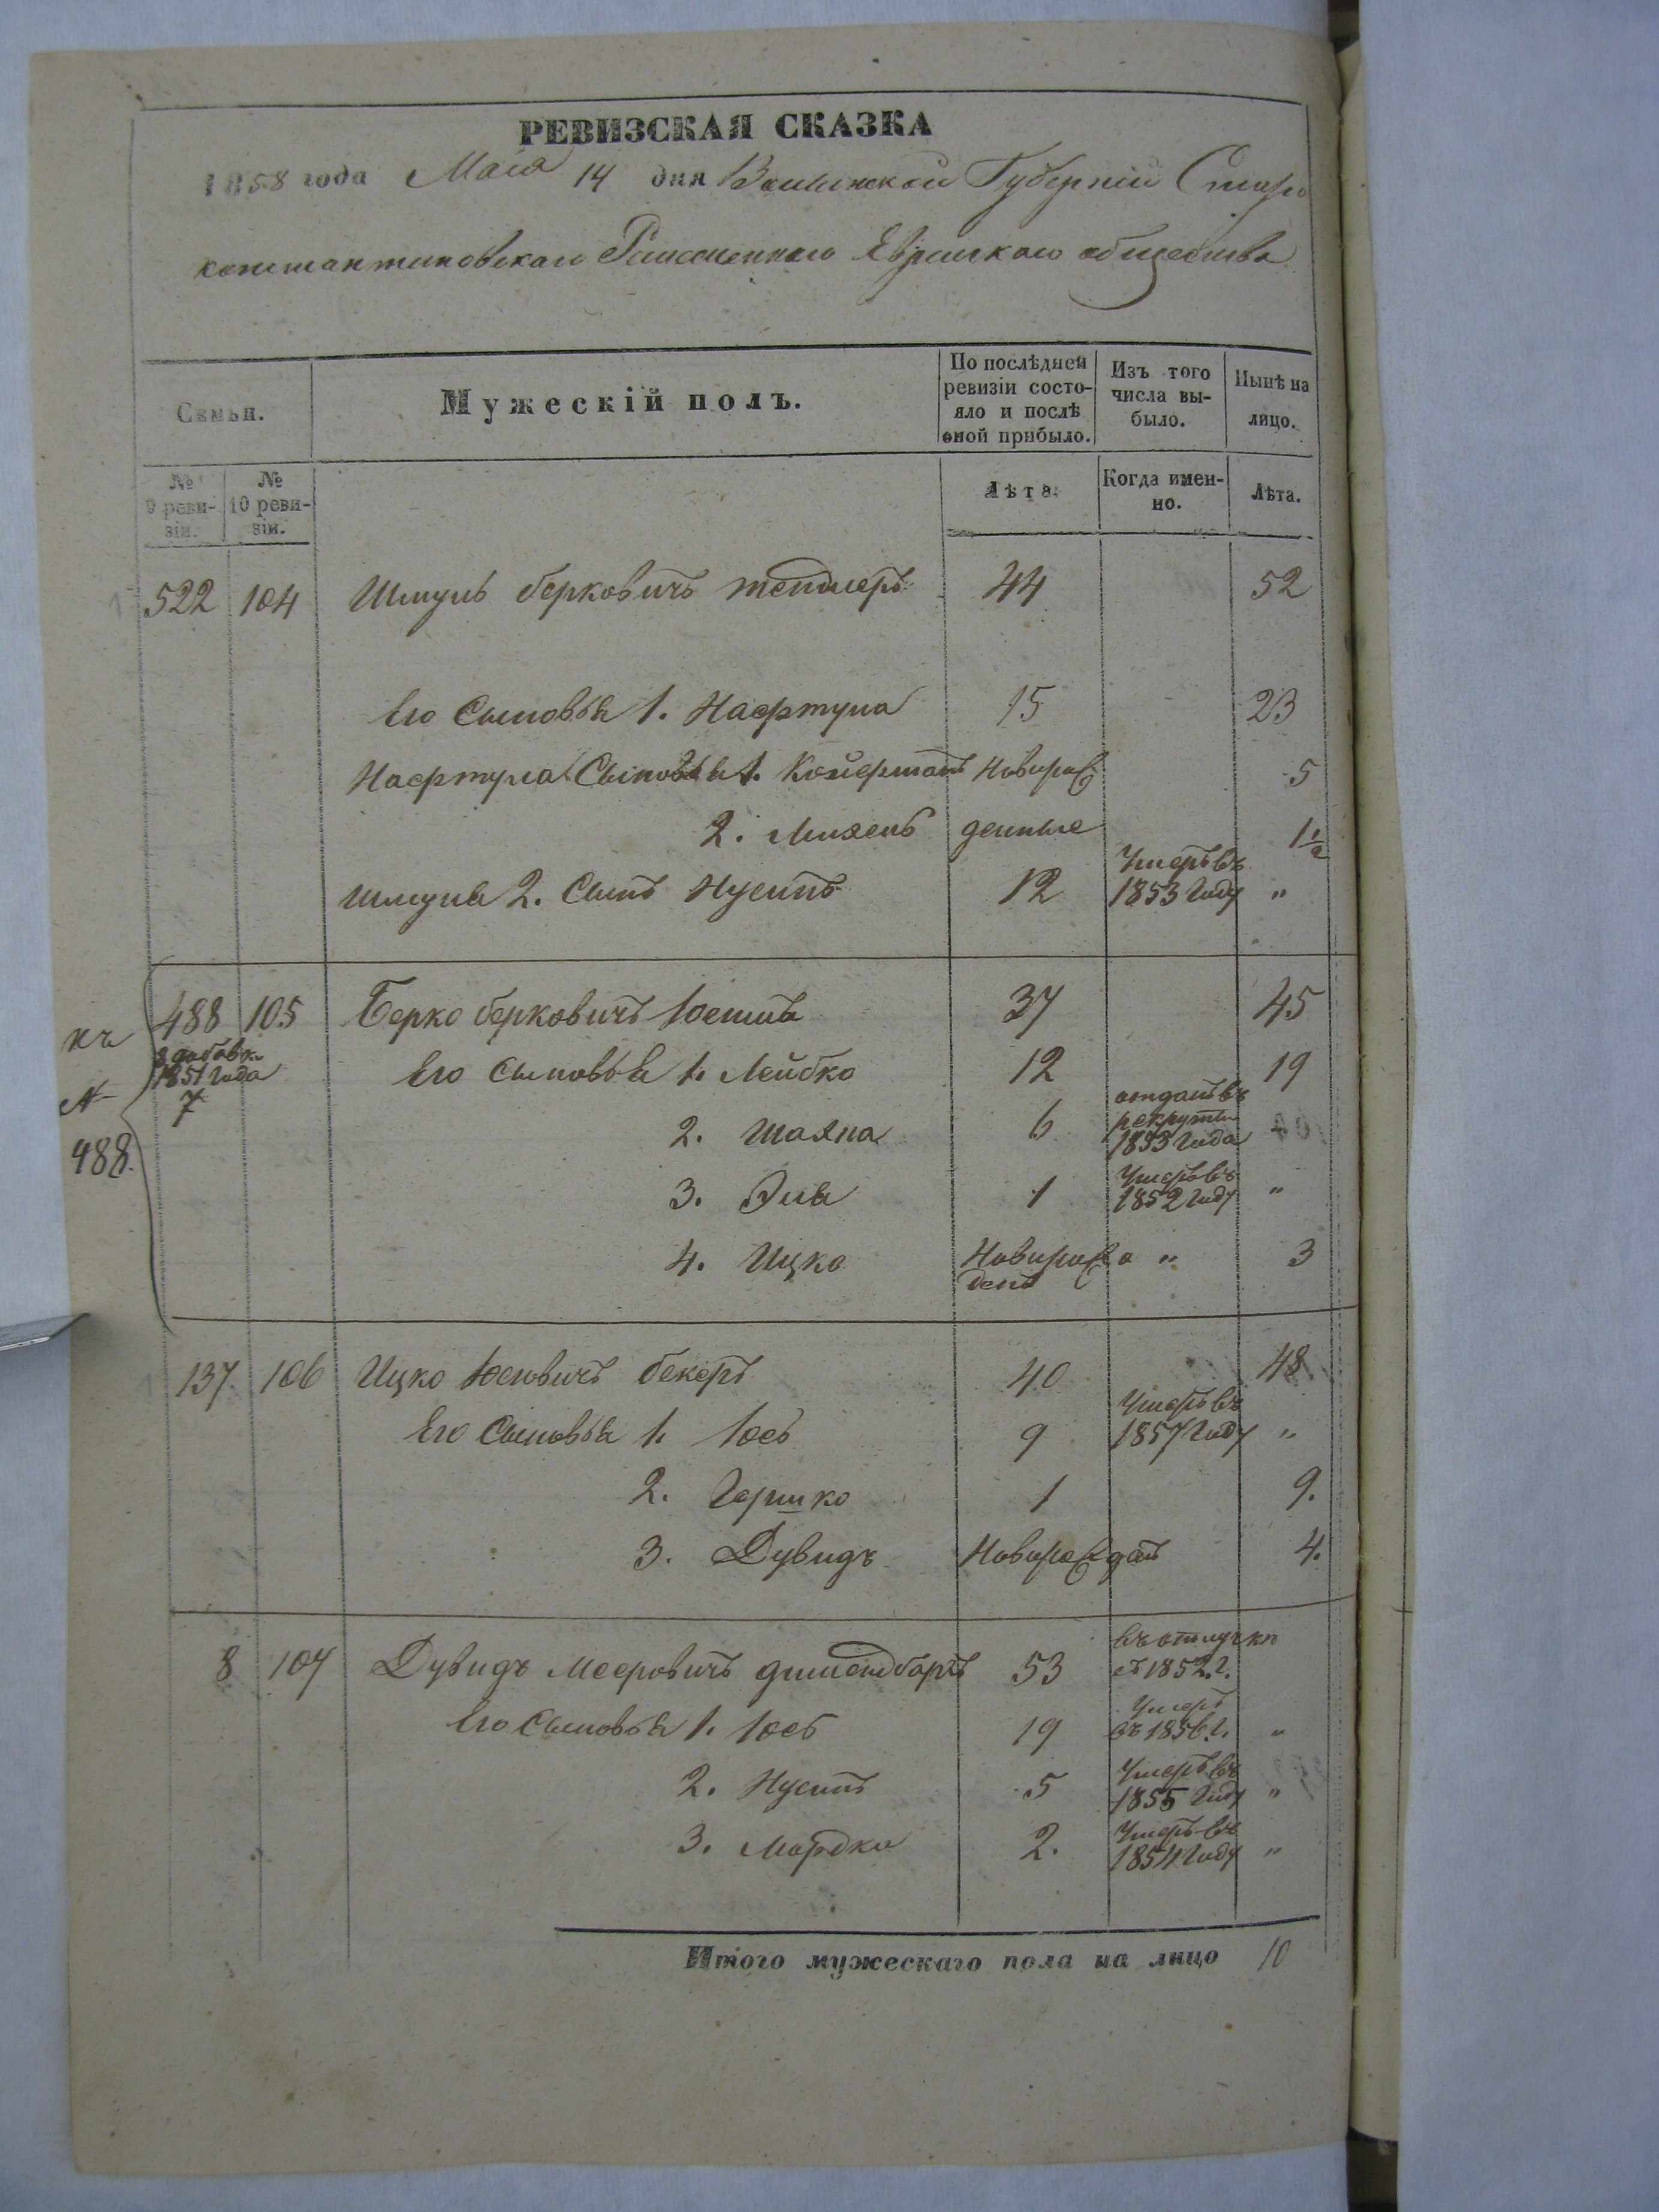 РЕВИЗСКАЯ СКАЗКА
1858 года Мая 14 дня Волынской Губерніи Старо
константиновскаго Еврейскаго общества
Семьи.
Мужескій полъ.
По послѣдней ревизіи состояло и послѣ оной прибыло.
Изъ того числа выбыло.
Нынѣ на лицо.
№ 9 ревизіи.
№ 10 ревизіи.
Лѣта.
Когда именно.
Лѣта.
522 104 Шмуль Берковичъ тендлеръ 44 52
Его Сыновья 1. Нафтула 15 23
Нафтула Сыновья 1. Койфманъ Новорож 5
2. денные 1½
Шмуля 2. Сынъ Нусинъ 12 Умеръ въ 1853 Году "
къ № 488.
488 105 Берко Берковичъ 37 45
добавк. 1851 Года 7
Его Сыновья 1. Лейбко 12 19
2. Шаяна 6 отданъ въ рекруты 1853 Года
3. Эля 1 Умеръ въ 1852 Году "
4. Ицко Новорож денъ " 3
137. 106 Ицко Юсьовичъ бекеръ 40 48.
Его Сыновья 1. Юсь 9 Умеръ въ 1857 Году "
2. Гершко 1 9.
3. Дувидъ Новорожданъ 4.
8 107 Дувидъ Мееровичъ 53 въ отлучкѣ съ 1852. г.
Его Сыновья 1. Юсь 19 Умеръ въ 1856. г. "
2. Нусинъ 5 Умеръ въ 1855 Году "
3. Мордко 2. Умеръ въ 1854 Году "
Итого мужескаго пола на лицо 10